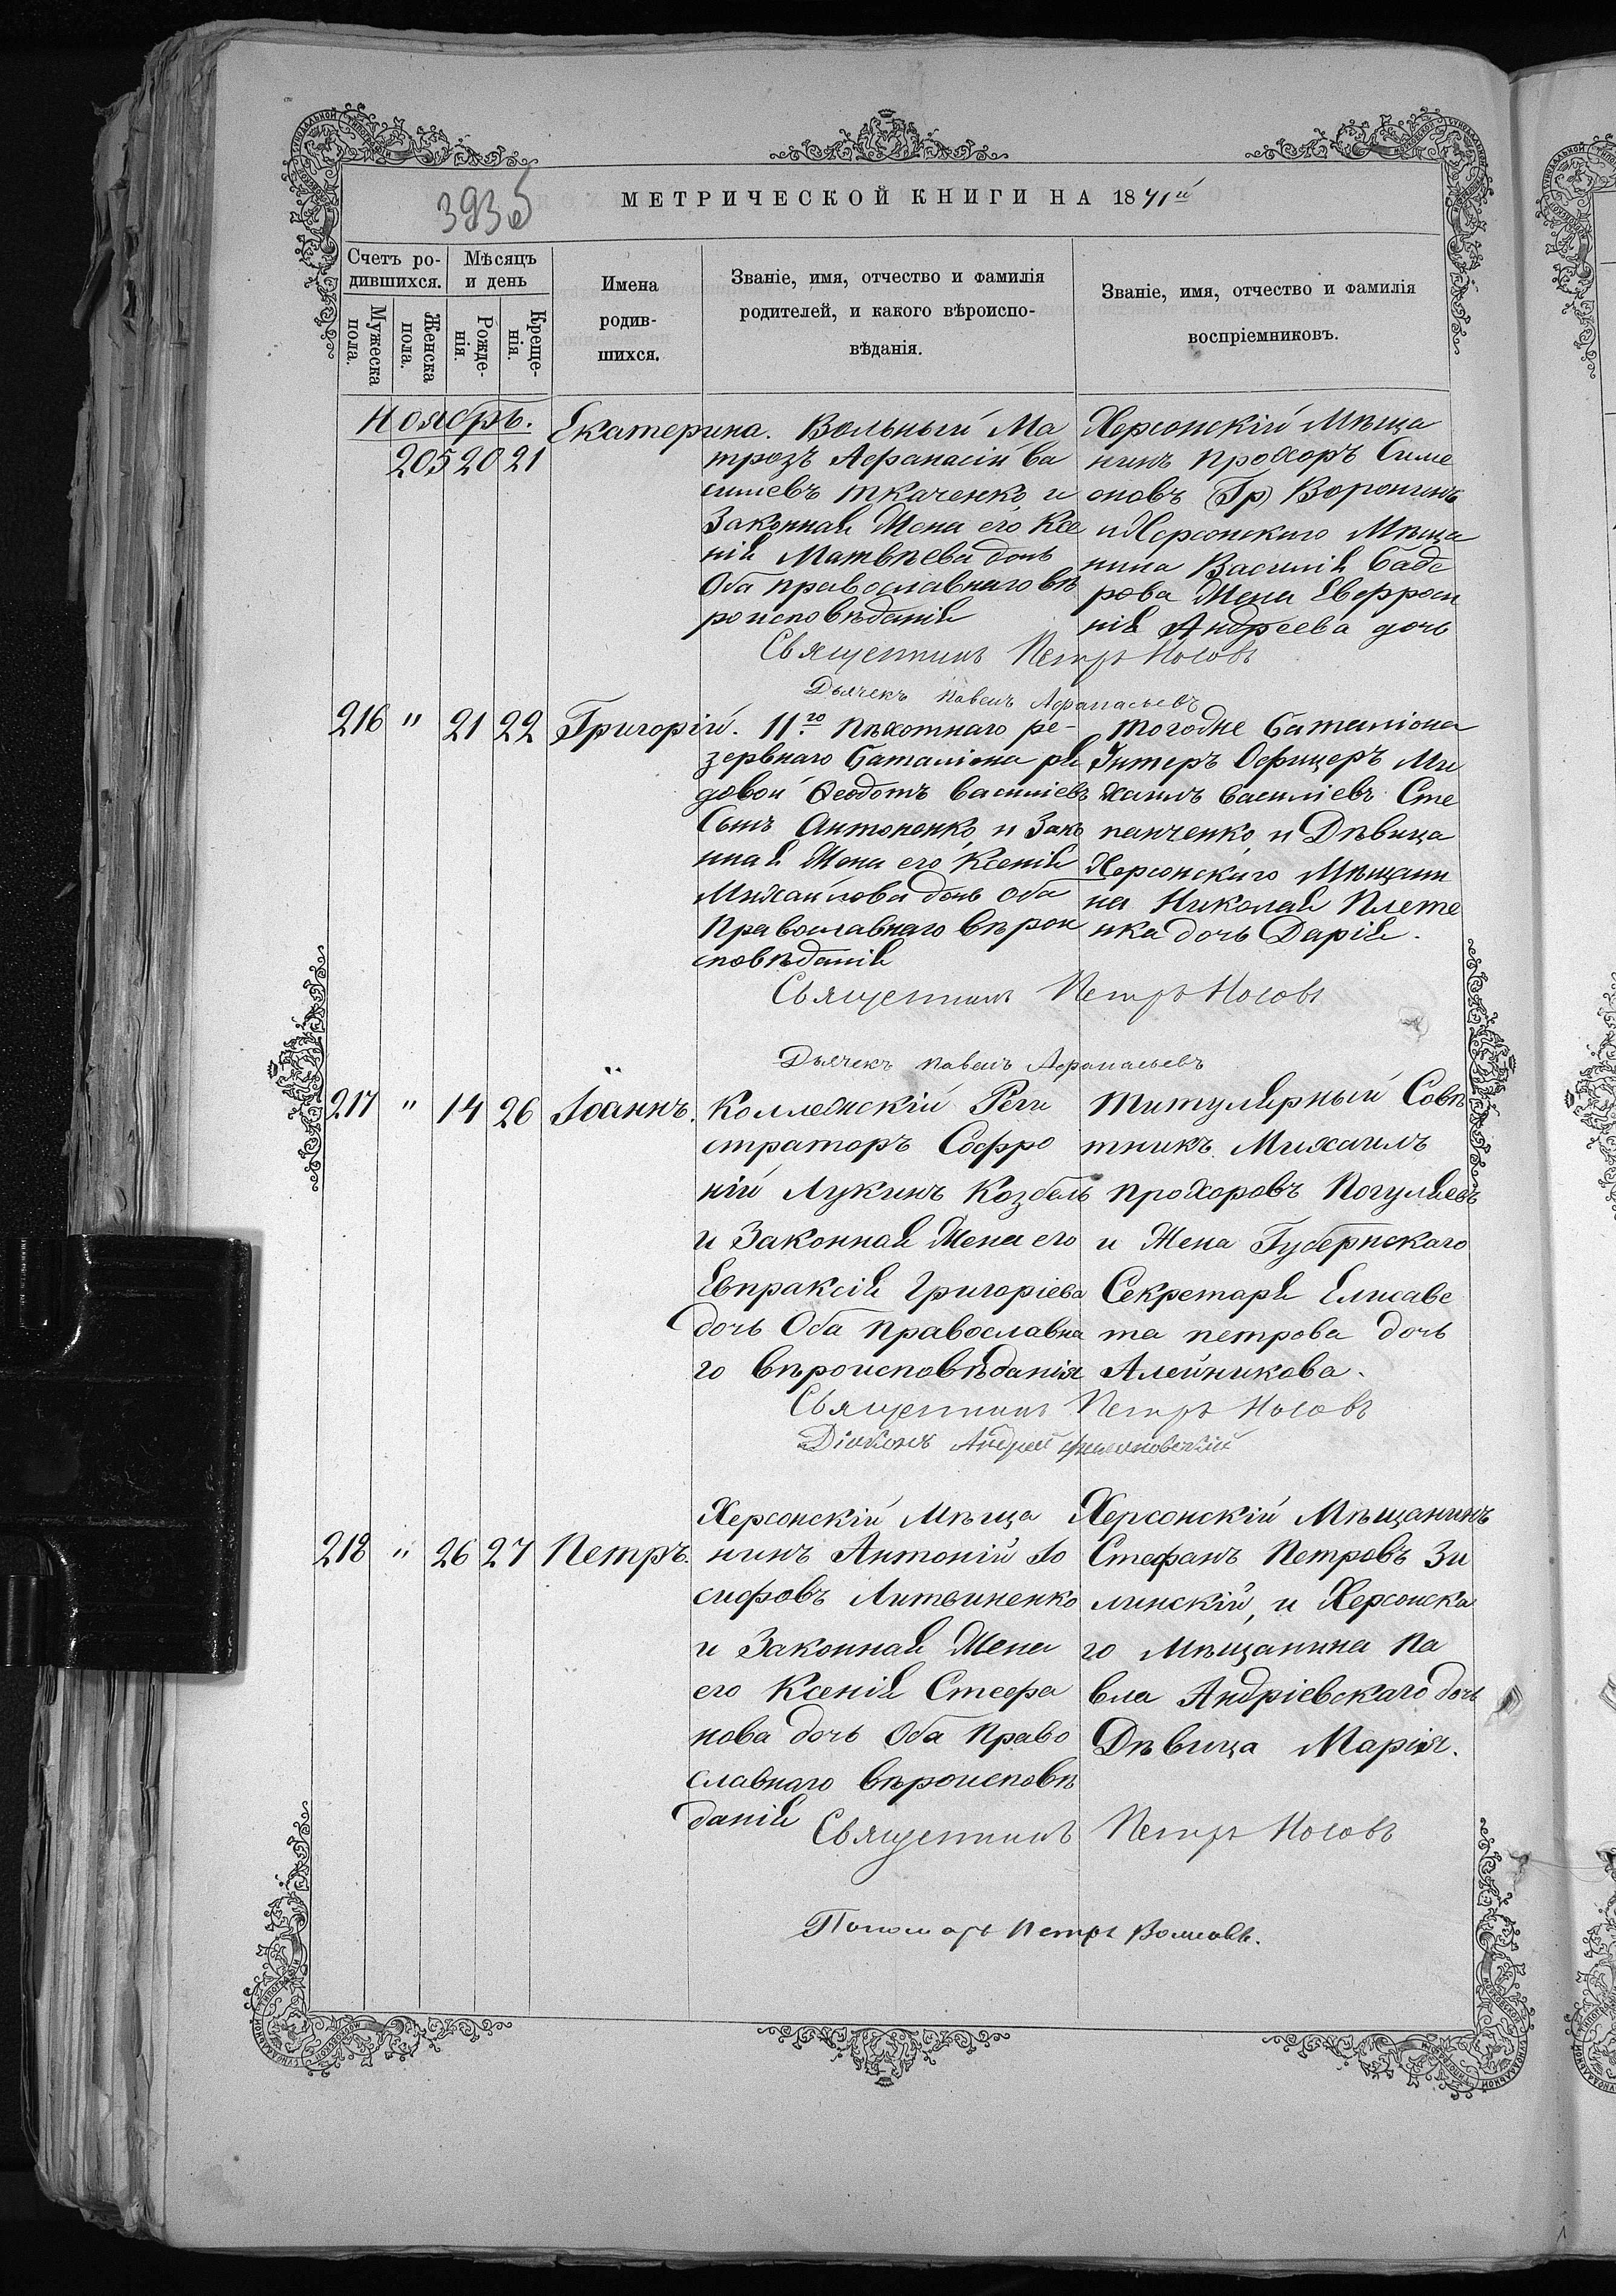 393 об
МЕТРИЧЕСКОЙ КНИГИ НА 1871й
Счетъ ро-
дившихся.
Мужеска
пола.
Женска
пола.
Мѣсяцъ
и день
Рожде-
нія.
Креще-
нія.
Имена
родив-
шихся.
Званіе, имя, отчество и фамилія
родителей, и какого вѣроиспо-
вѣданія.
Званіе, имя, отчество и фамилія
воспріемниковъ.
Ноябрь.
205 20 21
Екатерина.
Вольный Ма
трозъ Афанасій Ва
силіевъ Ткаченко и
Законная Жена его Ксе
нія Матвѣева дочь
Оба православнаго вѣ
роисповѣданія
Херсонскій Мѣща
нинъ Прохоръ Симе
оновъ (Гр) Воронинъ
и Херсонскаго Мѣща
нина Василія
Жена Евфроси
нія Андреева дочь
Священникъ Петръ Носовъ
Дьячекъ Павелъ Афанасьевъ
216 " 21 22 Григорій.
11го Пѣхотнаго ре-
зервнаго Баталіона ря
довой Ѳеодотъ Василіевъ
Сынъ Антоненко, и Зако
нная Жена его Ксенія
Михайлова дочь Оба
Православнаго вѣрои
сповѣданія
Тогоже Баталіона
Унтеръ Офицеръ Ми
хаилъ Василіевъ Сте
панченко, и Дѣвица
Херсонскаго Мѣщани
на Николая Плете
нка дочь Дарія.
Священникъ Петръ Носовъ
Дьячекъ Павелъ Афанасьевъ
217 " 14 26 Іоаннъ.
Коллежскій Реги
страторъ Софро
ній Лукинъ Козбель
и Законная Жена его
Евпраксія Григоріева
дочь Оба Православна
го вѣроисповѣданія
Титулярный Совѣ
тникъ Михаилъ
Прохоровъ Погуляевъ
и Жена Губернскаго
Секретаря Елисаве
та Петрова дочь
Алейникова.
Священникъ Петръ Носовъ
Діаконъ Андрей
218 " 26 27 Петръ.
Херсонскій Мѣща
нинъ Антоній Іо
сифовъ Литвиненко
и Законная Жена
его Ксенія Стефа
нова дочь Оба Право
славнаго вѣроисповѣ
данія
Херсонскій Мѣщанинъ
Стефанъ Петровъ Зи
линскій, и Херсонска
го Мѣщанина Па
вла Андріевскаго дочь
Дѣвица Марія.
Священникъ Петръ Носовъ
Пономарь Петръ